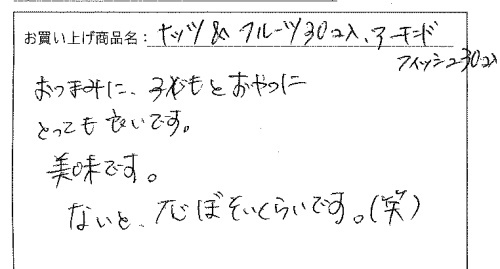 お買い上げ商品名：ナッツ&フルーツ30コ入、アーモンド
フィッシュ30コ入
おつまみに、子どもとおやつに
とっても良いです。
美味です。
ないと、心ぼそいくらいです。(笑)